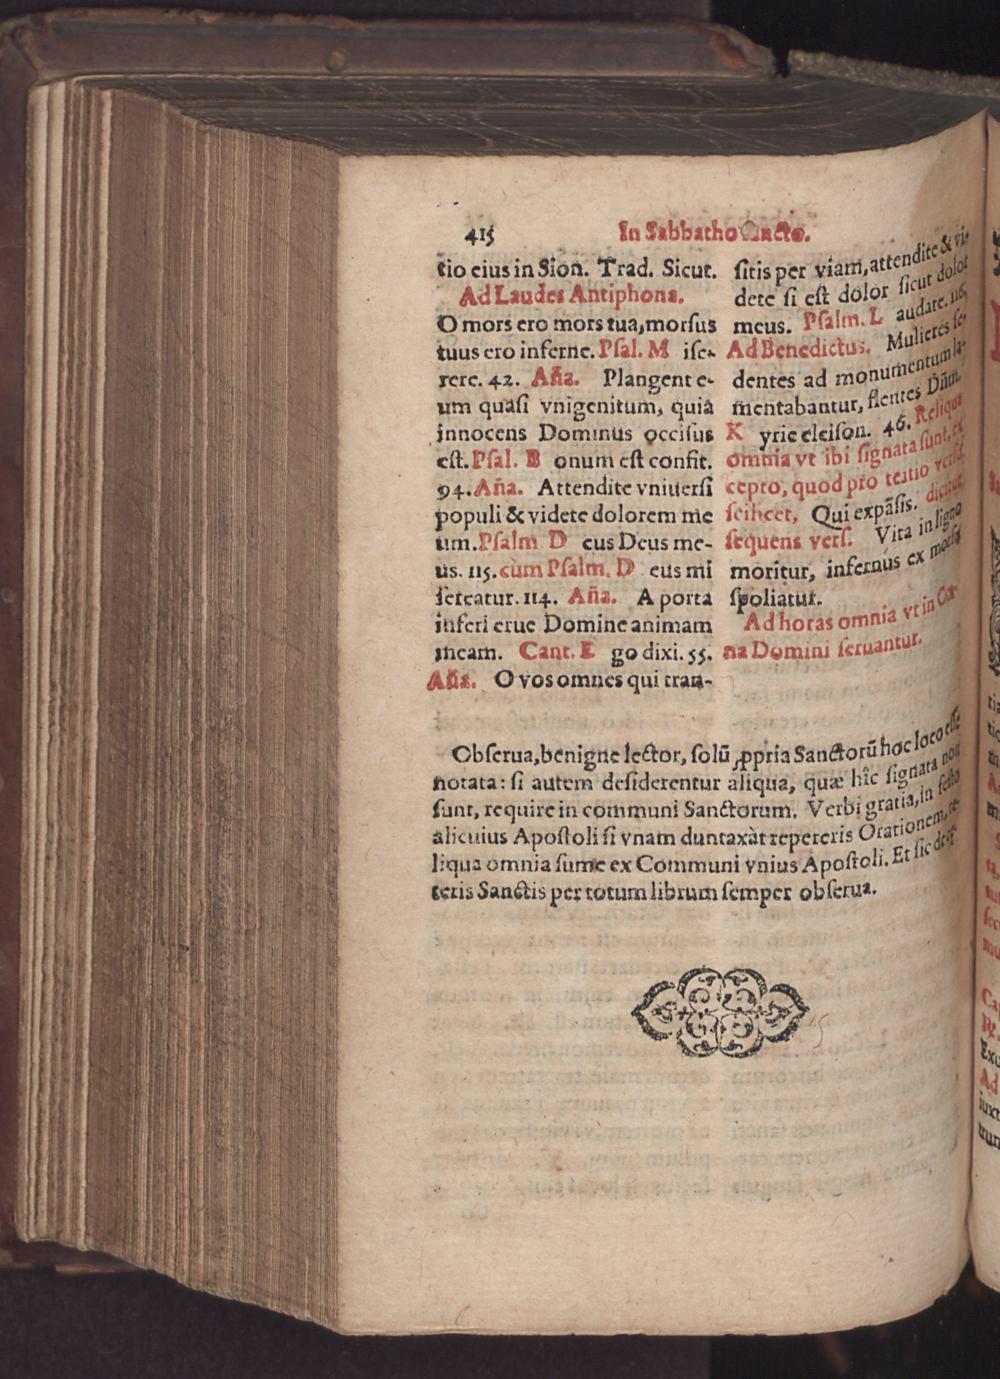 415 In Sabbatho Sancto.
tio eius in Sion. Trad. Sicut.
Ad Laudes Antiphona.
O mors ero mors tua, morsus
tuus ero inferne. Psal. M ise-
rere. 42. Aña. Plangent e-
um quasi vnigenitum, quia
innocens Dominus occisus
est. Psal. B onum est confit.
94. Aña. Attendite vniuersi
populi & videte dolorem me
um. Psalm D eus Deus me-
us. 115. cum Psalm. D eus mi
sereatur. 114. Aña. A porta
inferi erue Domine animam
meam. Cant. E go dixi. 55.
Aña. O vos omnes qui tran-
sitis per viam, attendite & vi-
dete si est dolor sicut dolor
meus. Psalm. L audate. 116.
Ad Benedictus. Mulieres se-
dentes ad monumentum la-
mentabantur, flentes Dñm.
K yrie eleison. 46. Reliqua
omnia vt ibi signata sunt, ex
cepto, quod pro tertio versu,
scilicet, Qui expãsis. dicitur
sequens vers. Vita in ligno
moritur, infernus ex morsu
spoliatur.
Ad horas omnia vt in Cœ-
na Domini seruantur.
Obserua, benigne lector, solũ ꝓpria Sanctorũ hoc loco esse
notata: si autem desiderentur aliqua, quæ hîc signata non
sunt, require in communi Sanctorum. Verbi gratia, in festo
alicuius Apostoli si vnam duntaxàt repereris Orationem, re-
liqua omnia sume ex Communi vnius Apostoli. Et sic de cę-
teris Sanctis per totum librum semper obserua.